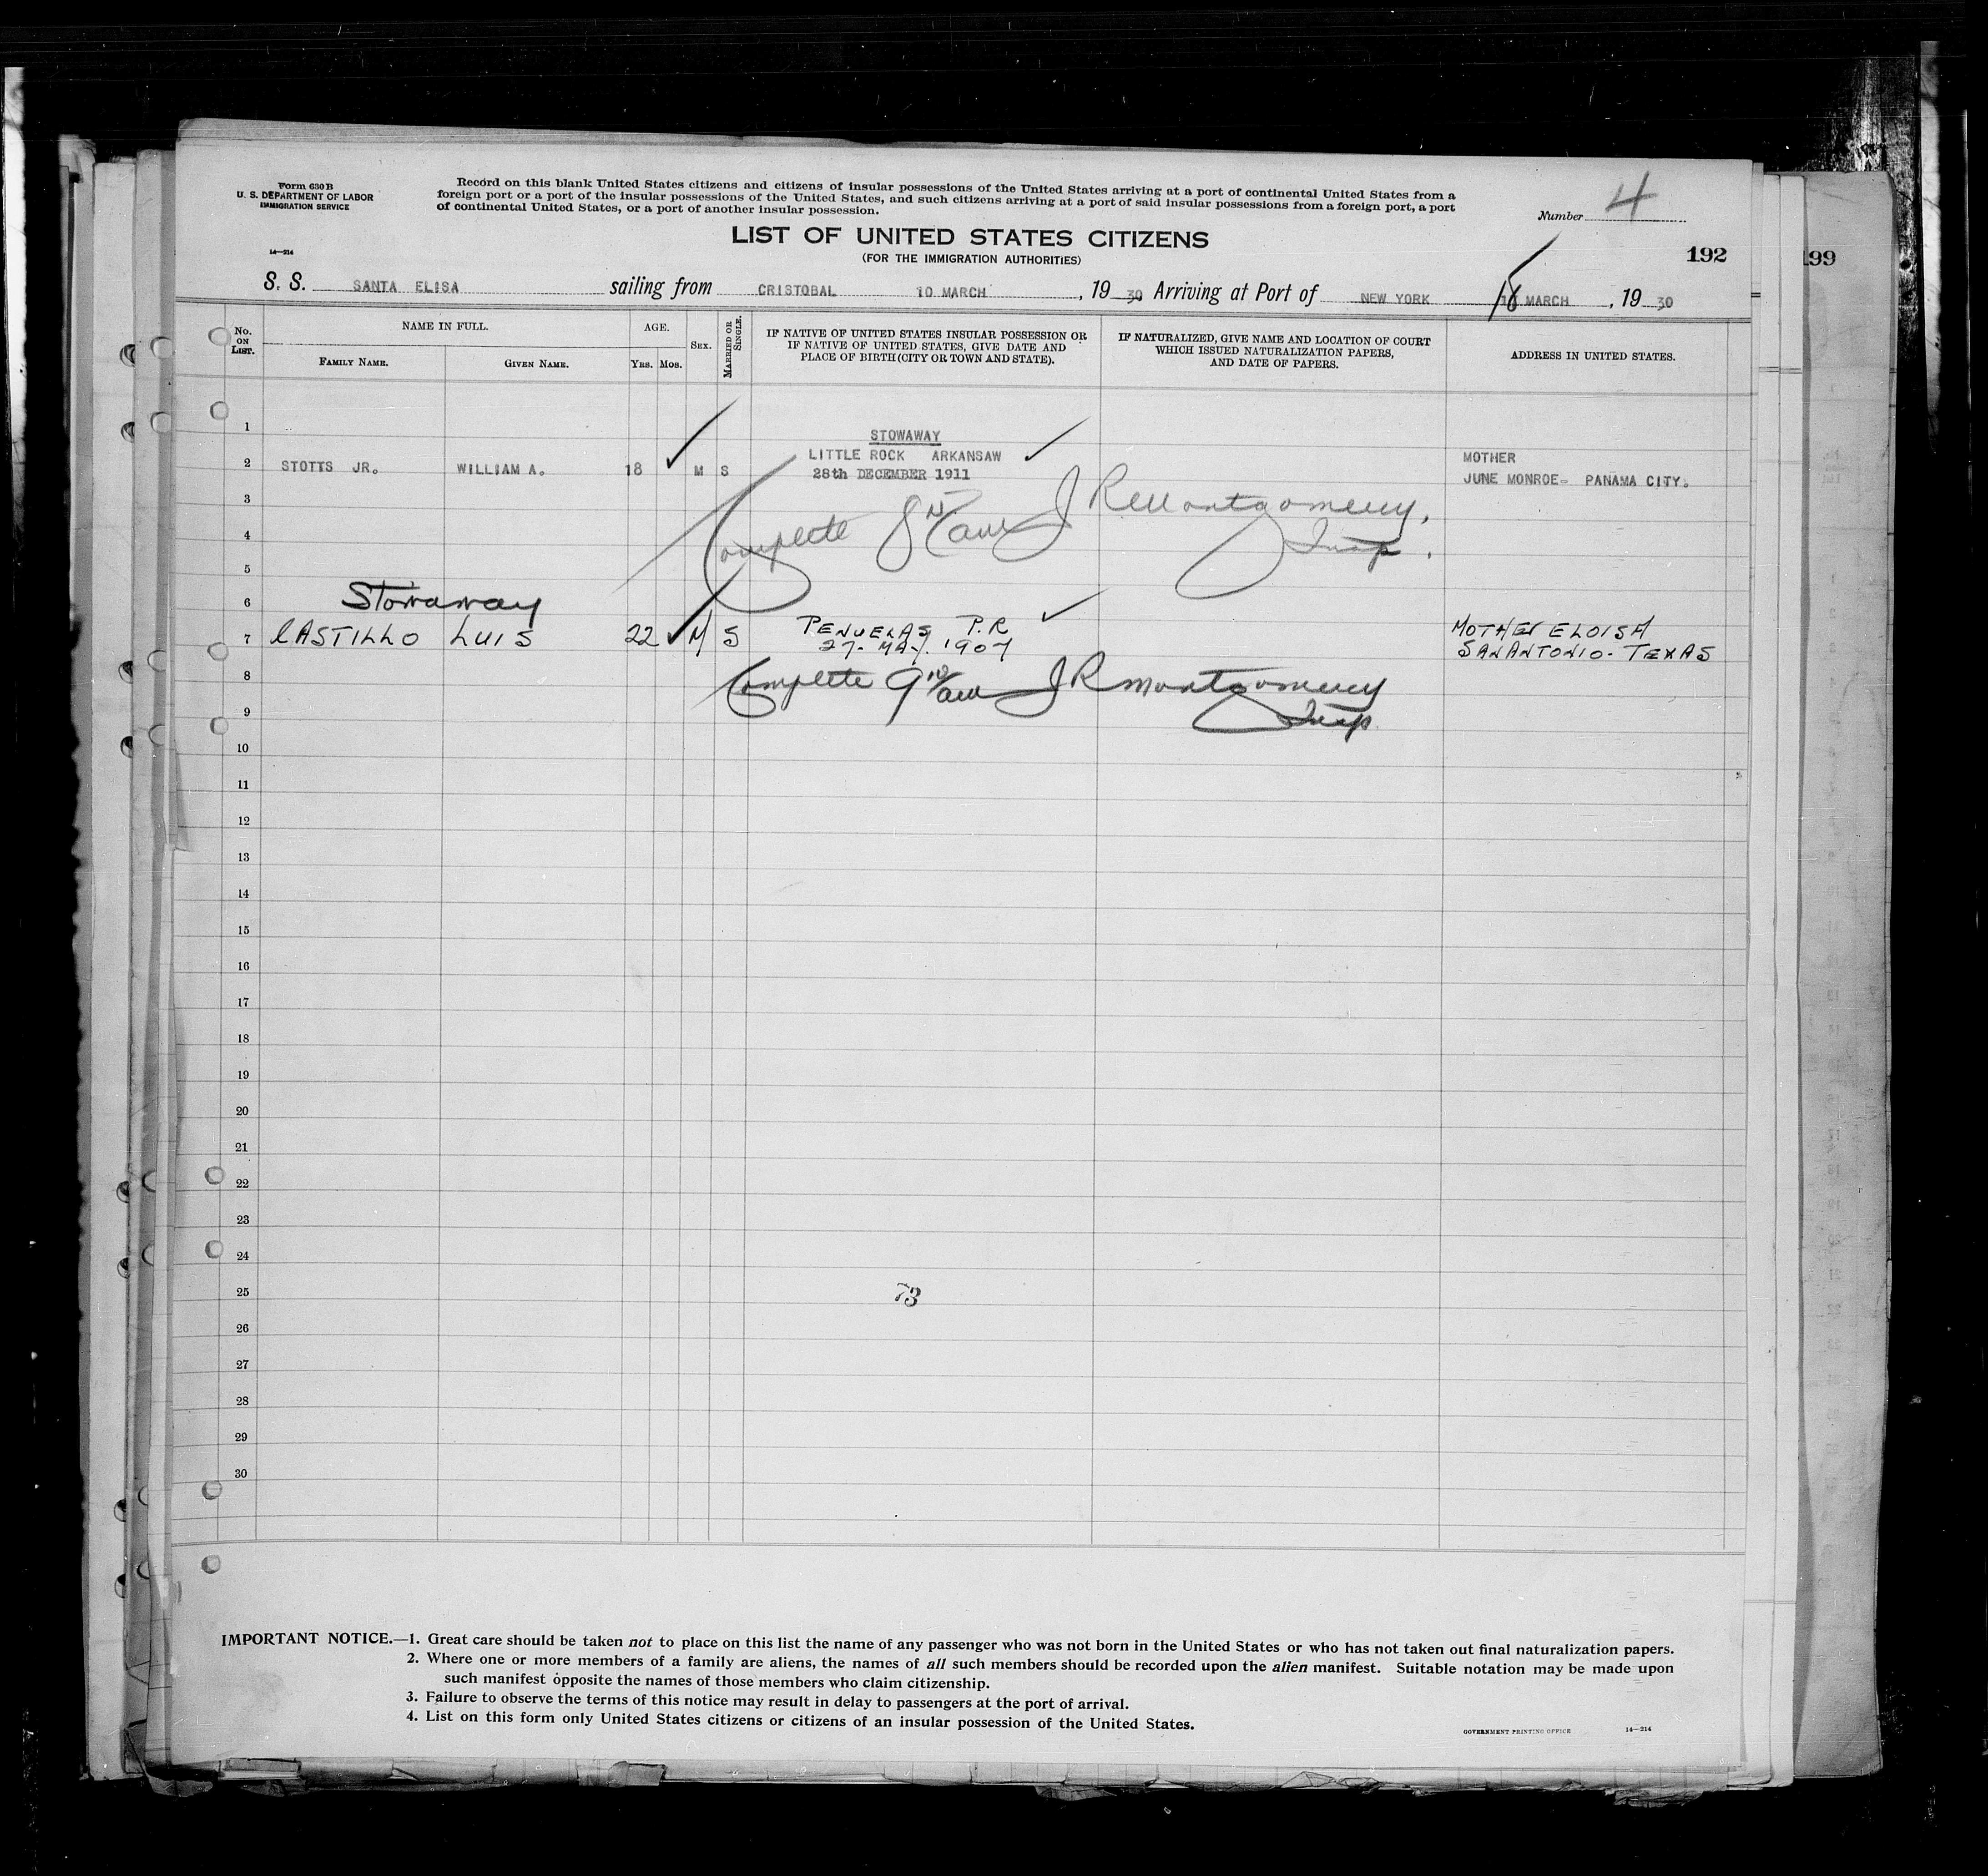 Form 630 B
U. S. DEPARTMENT OF LABOR
IMMIGRATION SERVICE
14—214
Record on this blank United States citizens and citizens of insular possessions of the United States arriving at a port of continental United States from a
foreign port or a port of the insular possessions of the United States, and such citizens arriving at a port of said insular possessions from a foreign port, a port
of continental United States, or a port of another insular possession.
Number 4
LIST OF UNITED STATES CITIZENS
(FOR THE IMMIGRATION AUTHORITIES)
192
199
S. S. SANTA ELISA sailing from CRISTOBAL 10 MARCH, 19 30 Arriving at Port of NEW YORK MARCH, 19 30
No. ON LIST.
NAME IN FULL.
FAMILY NAME.
GIVEN NAME.
AGE.
YRS. MOS.
SEX.
MARRIED OR SINGLE.
IF NATIVE OF UNITED STATES INSULAR POSSESSION OR
IF NATIVE OF UNITED STATES, GIVE DATE AND
PLACE OF BIRTH (CITY OR TOWN AND STATE).
IF NATURALIZED, GIVE NAME AND LOCATION OF COURT
WHICH ISSUED NATURALIZATION PAPERS,
AND DATE OF PAPERS.
ADDRESS IN UNITED STATES.
1
STOWAWAY
LITTLE ROCK ARKANSAW
MOTHER
2 STOTTS JR. WILLIAM A. 18 M S 28th DECEMBER 1911 JUNE MONROE- PANAMA CITY.
3
Complete 8 J R Montgomery,
4
Insp.
5
6
Stowaway
7 CASTILLO LUIS 22 M S PENUELAS P.R MOTHER ELOISA
27- MAY. 1907 SAN ANTONIO- TEXAS
8
Complete 9 J R Montgomery
9
Insp
10
11
12
13
14
15
16
17
18
19
20
21
22
23
24
25
73
26
27
28
29
30
IMPORTANT NOTICE.—1. Great care should be taken not to place on this list the name of any passenger who was not born in the United States or who has not taken out final naturalization papers.
2. Where one or more members of a family are aliens, the names of all such members should be recorded upon the alien manifest. Suitable notation may be made upon
such manifest opposite the names of those members who claim citizenship.
3. Failure to observe the terms of this notice may result in delay to passengers at the port of arrival.
4. List on this form only United States citizens or citizens of an insular possession of the United States.
GOVERNMENT PRINTING OFFICE
14—214